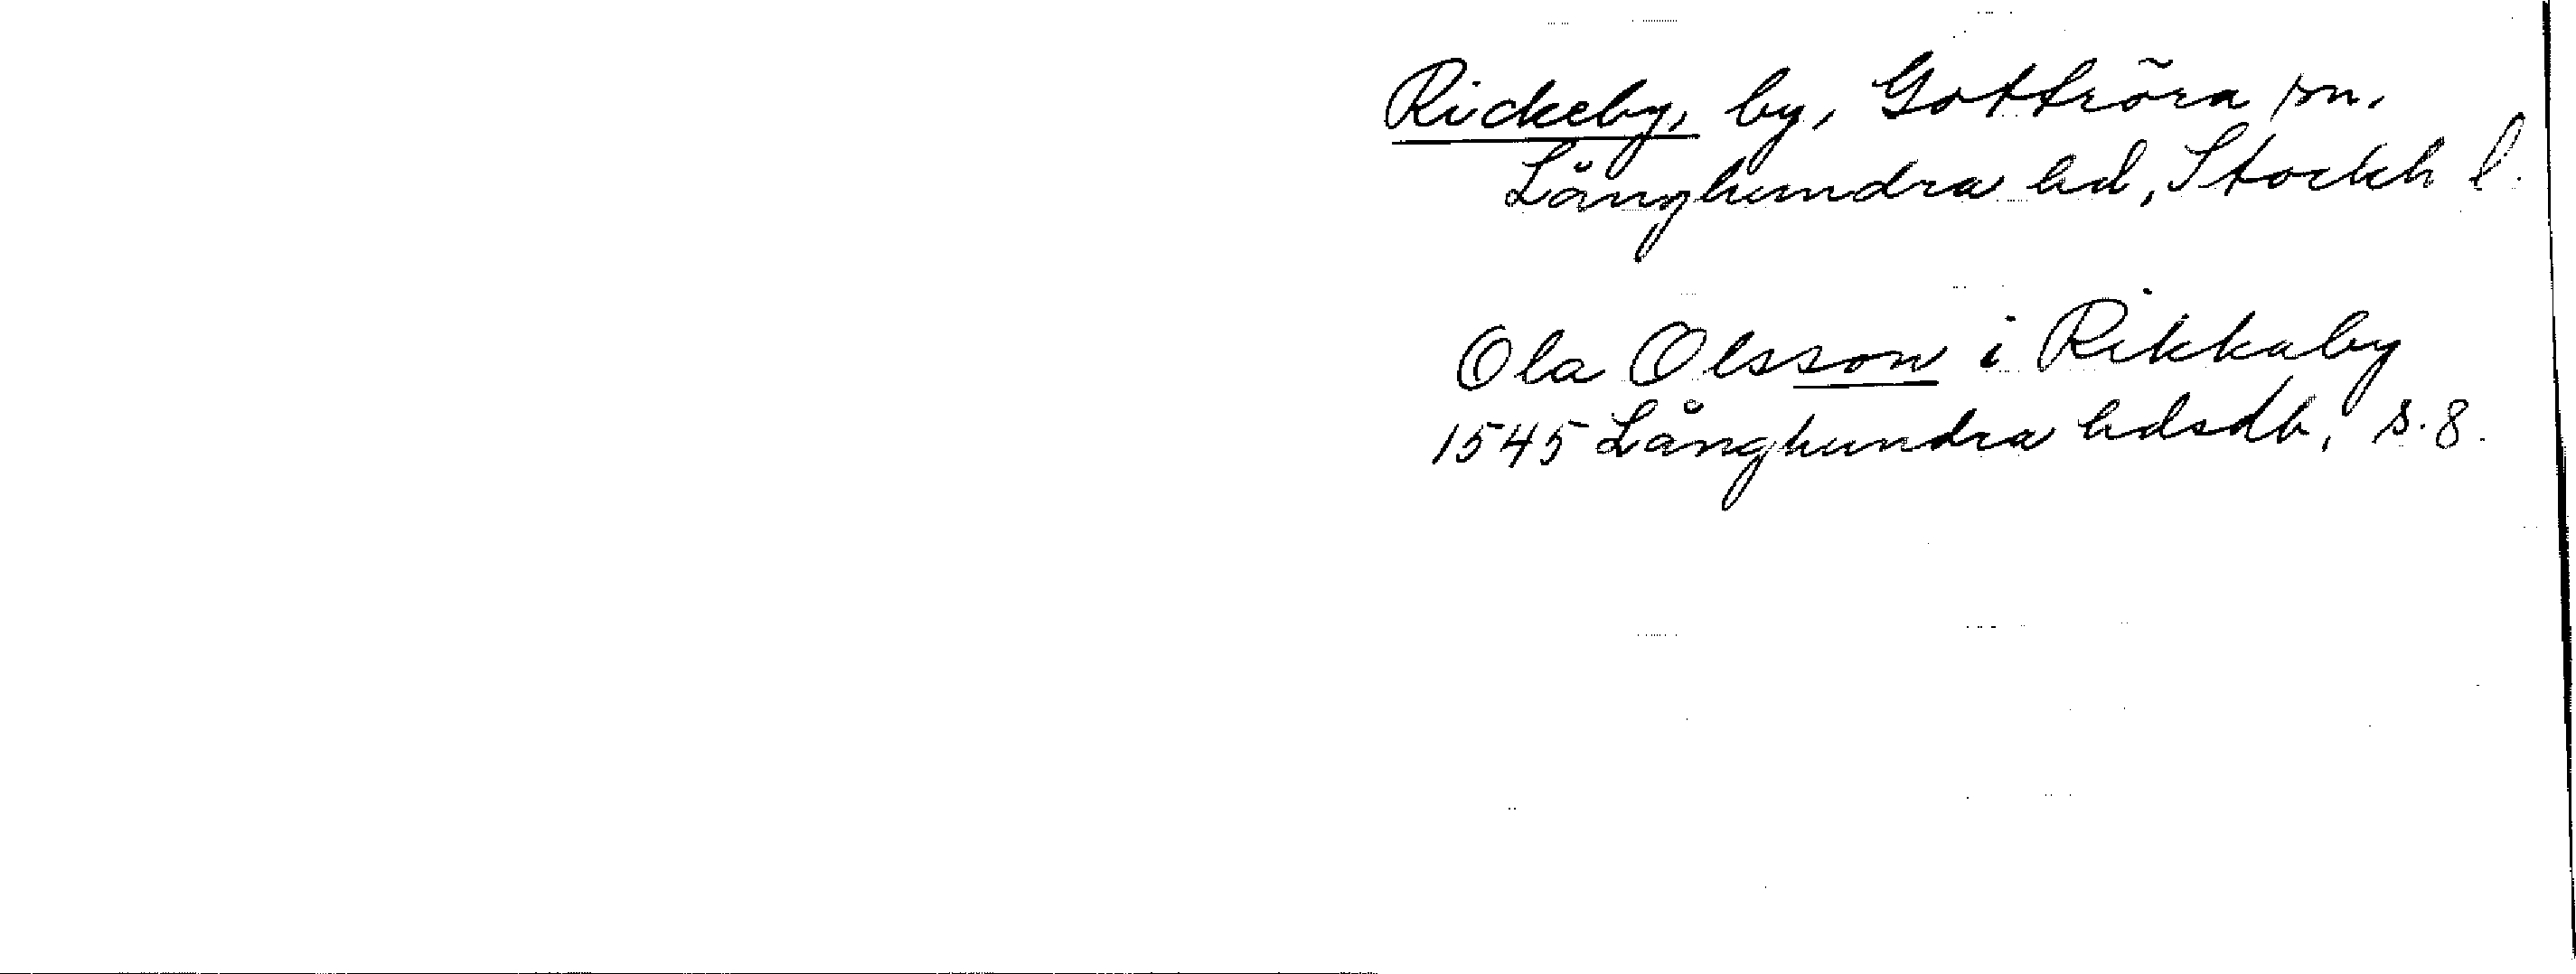 Rickeby, by, Gottröra sn.
Långhundra hd, Stockh l.
Ola Olsson i Rikkaby
1545 Långhundra hdsdb, s. 8.